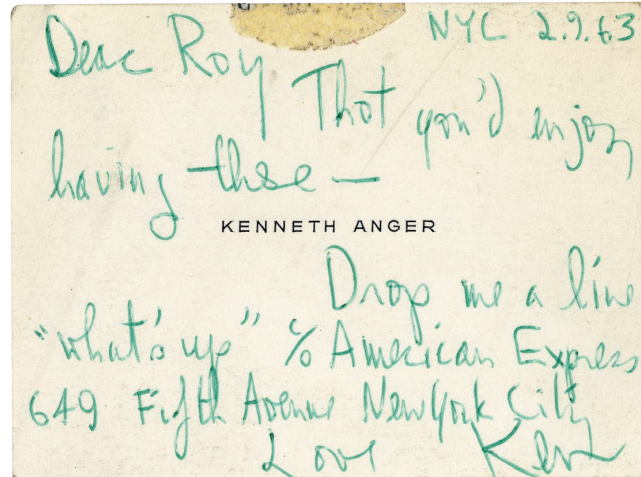 NYC 2.9.63
Dear Roy
Thot you'd enjoy
having these —
KENNETH ANGER
Drop me a line
"what's up" c/o American Express
649 Fifth Avenue New York City
Love Ken